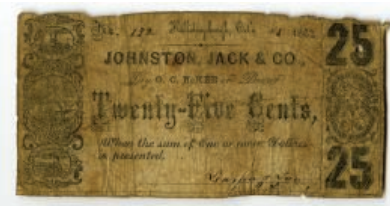 No. 182
25
JOHNSTON, JACK & CO.,
Pay O. C. McKEE or Bearer
Twenty-Five Cents,
When the sum of One or more Dollars
is presented.
25